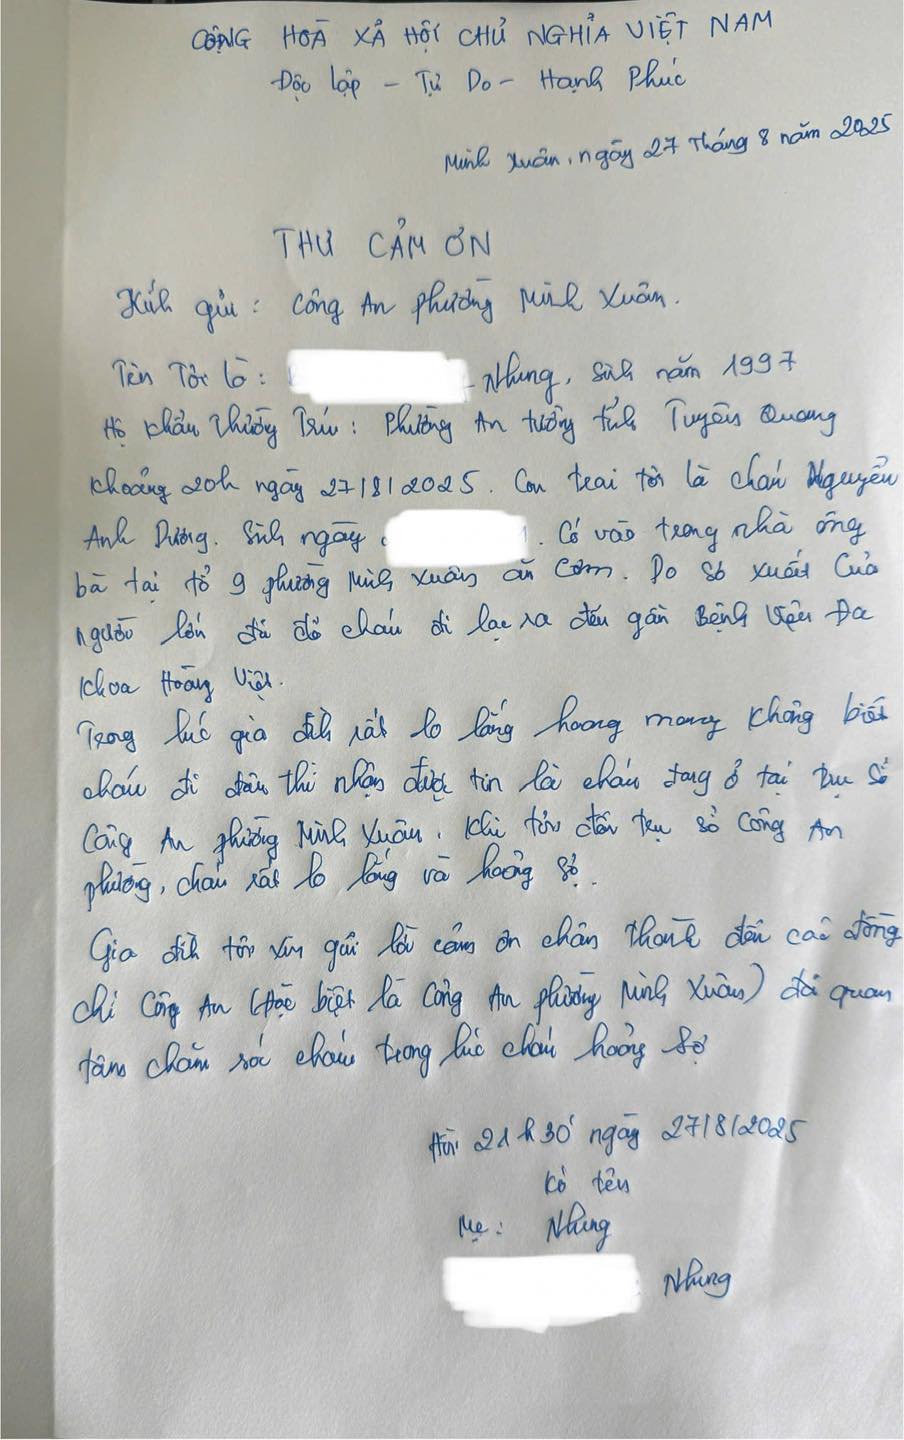 CỘNG HOÀ XÃ HỘI CHỦ NGHĨA VIỆT NAM
Độc lập - Tự Do - Hạnh Phúc
Minh Xuân, ngày 27 tháng 8 năm 2025
THƯ CẢM ƠN
Kính gửi: Công An phường Minh Xuân.
Tên Tôi là: Nhung, Sinh năm 1997
Hộ khẩu thường Trú: Phường An tường tỉnh Tuyên Quang
Khoảng 20h ngày 27/8/2025. Con trai tôi là cháu Nguyễn
Anh Dương. Sinh ngày . Có vào trong nhà ông
bà tại tổ 9 phường Minh Xuân ăn cơm. Do sơ xuất của
người lớn đã để cháu đi lạc ra đến gần Bệnh Viện Đa
khoa Hoàng Việt.
Trong lúc gia đình rất lo lắng hoang mang không biết
cháu đi đâu thì nhận được tin là cháu đang ở tại trụ sở
Công An phường Minh Xuân. Khi tôi đến trụ sở Công An
phường, cháu rất lo lắng và hoảng sợ.
Gia đình tôi xin gửi lời cảm ơn chân thành đến các đồng
chí Công An (Đặc biệt là Công An phường Minh Xuân) đã quan
tâm chăm sóc cháu trong lúc cháu hoảng sợ
Hồi 21h30' ngày 27/8/2025
Kí tên
Mẹ: Nhung
Nhung